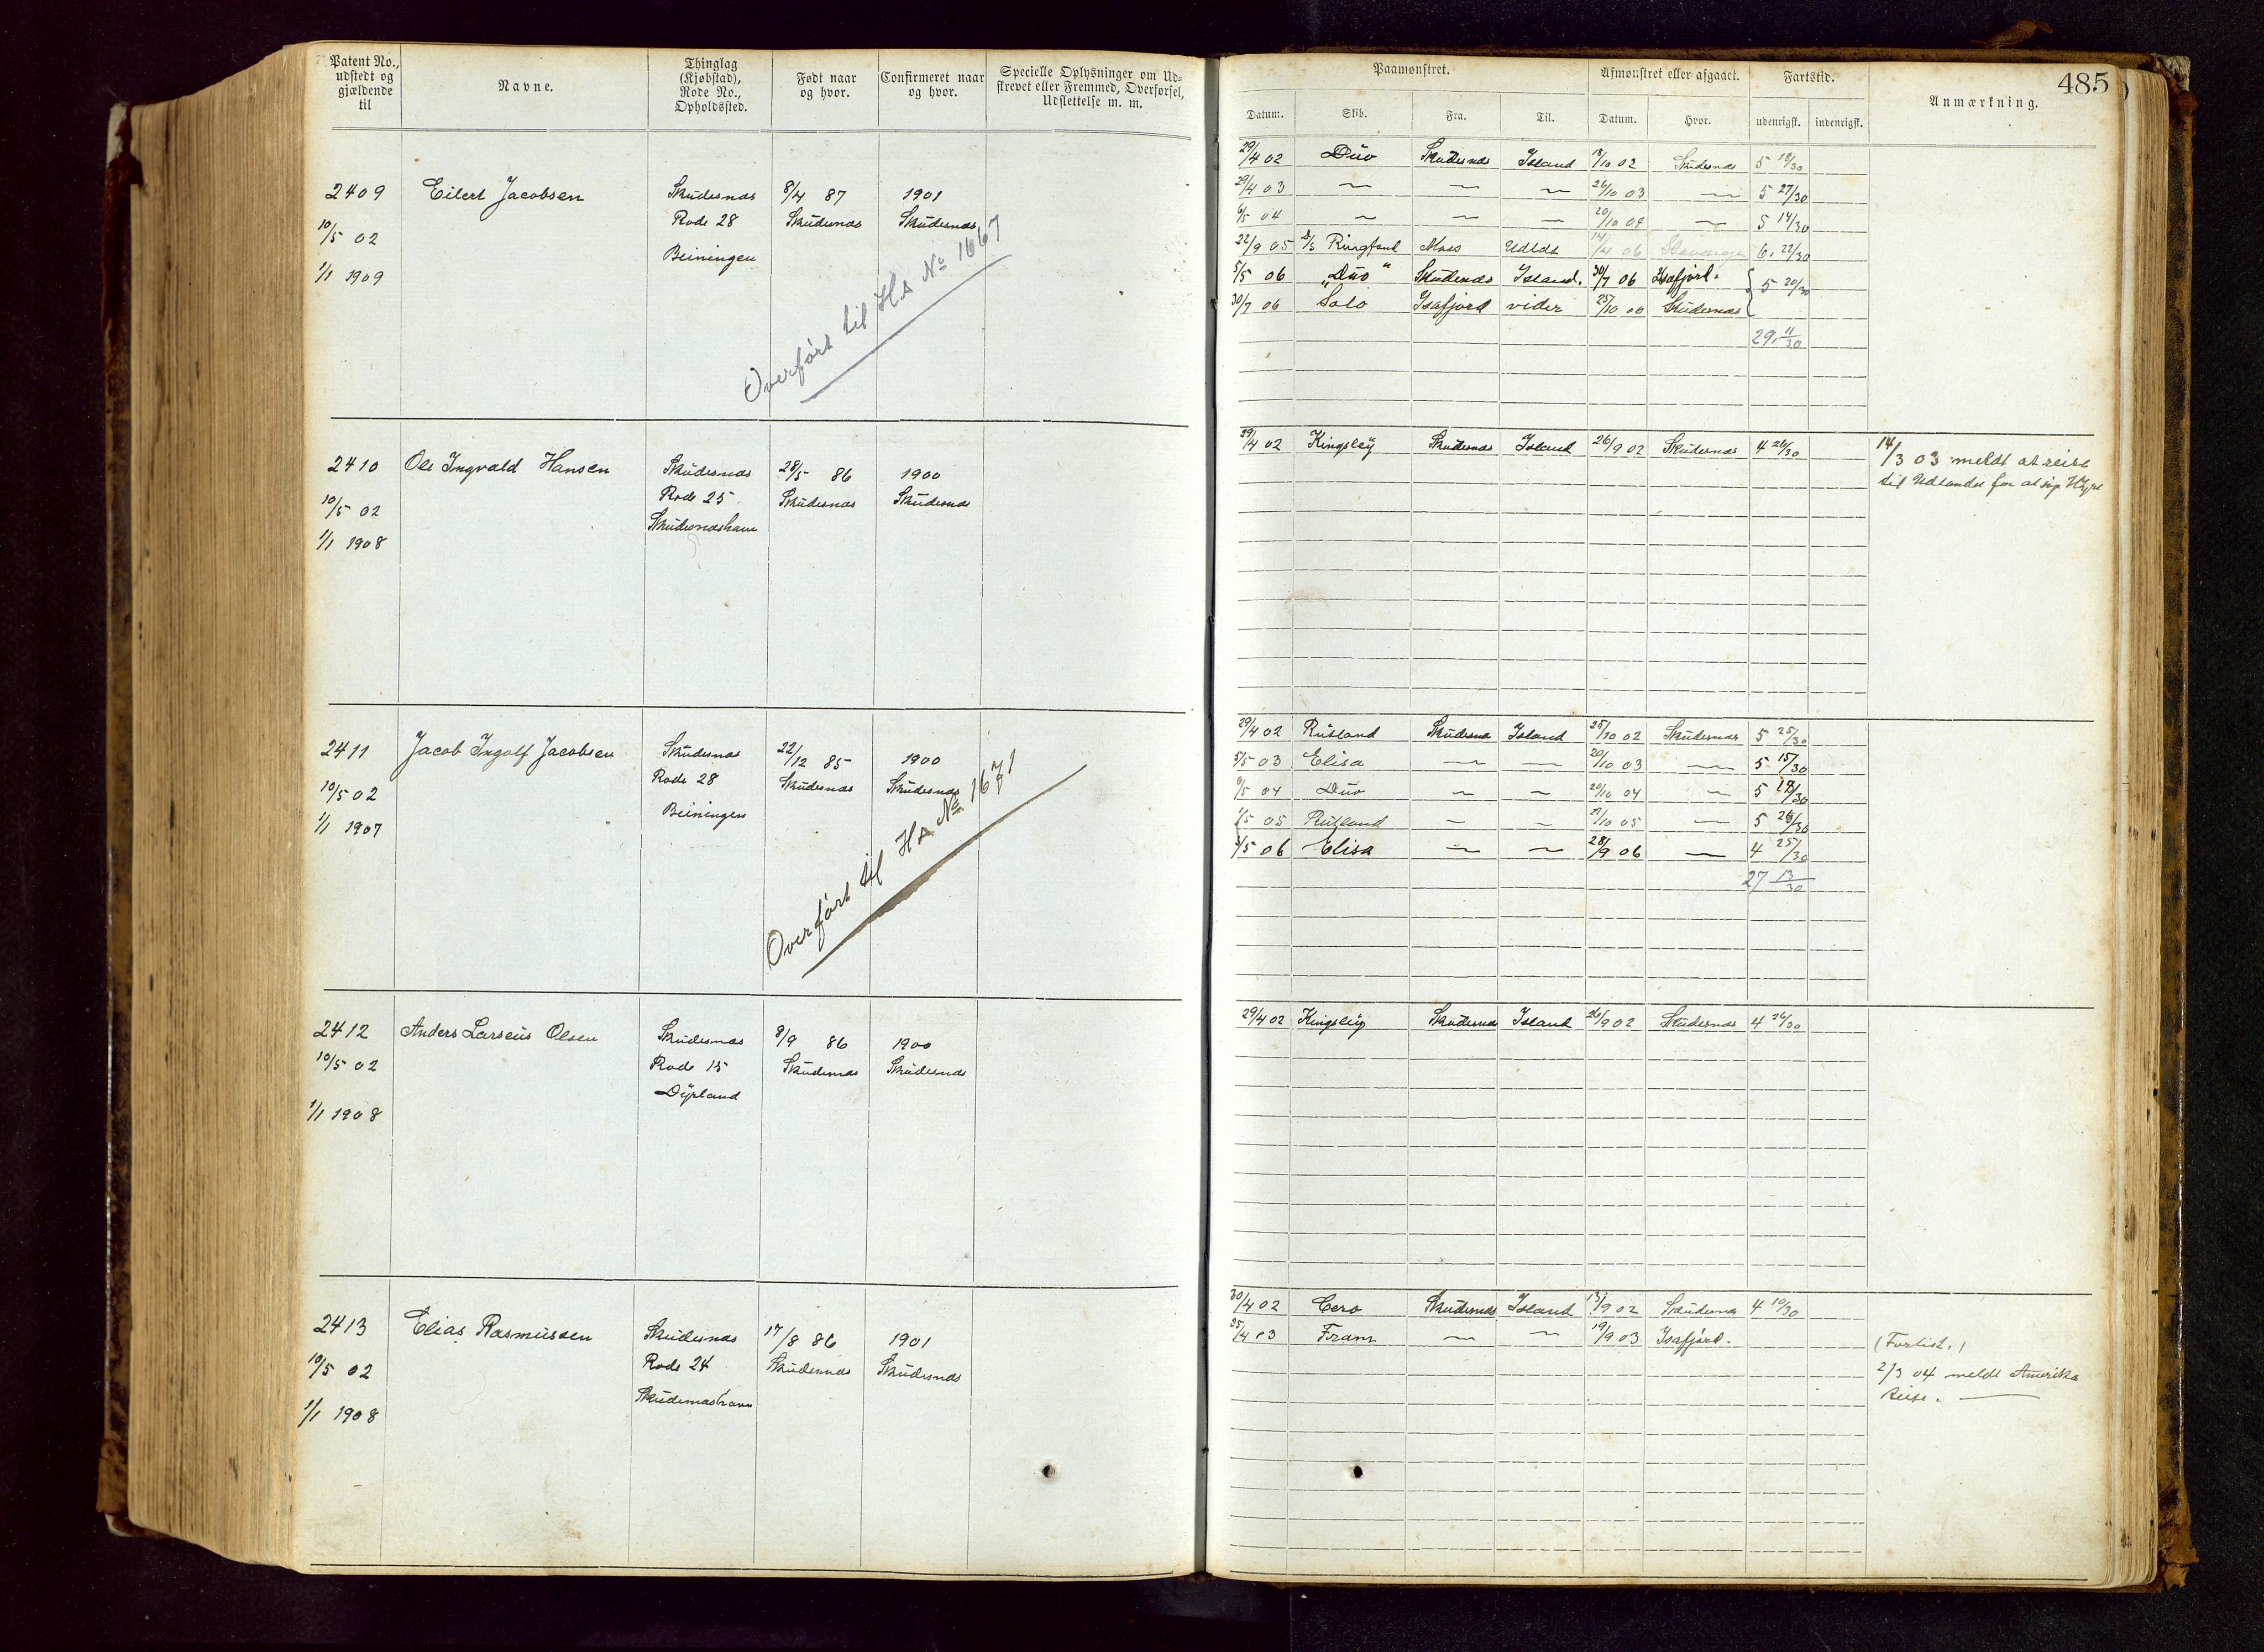 Patent No., udstedt og gjældende til
Navne.
Thinglag (Kjøbstad), Rode No., Opholdssted.
Født naar og hvor.
Confirmeret naar og hvor.
Specielle Oplysninger om Udskrevet eller Fremmed, Overførsel, Udslettelse m. m.
Paamønstret.
Afmønstret eller afgaaet.
Fartstid.
Anmærkning.
485
Datum. Skib. Fra. Til. Datum. Hvor. udenrigsk. indenrigsk.
2409 Eilert Jacobsen Skudesnæs 8/4 87 1901
10/5 02 Rode 28 Skudesnæs Skudesnæs
1/1 1909 Beiningen
Overført til H A No 1667
29/4 02 Duo Skudesnæs Island 18/10 02 Skudesnæs 5 18/30
29/4 03 — — — 26/10 03 — 5 27/30
6/5 04 — — — 20/10 04 — 5 14/30
22/9 05 Ringfond Moss Udldt 14/4 06 Stavanger 6. 22/30
5/5 06 "Duo" Skudesnæs Island. 30/7 06 Isafjord. 5 20/30
30/7 06 Solo Isafjord vider 25/10 06 Skudesnæs
29. 11/30
2410 Ole Ingvald Hansen Skudesnæs 28/5 86 1900
10/5 02 Rode 25 Skudesnæs Skudesnæs
1/1 1908 Skudesnæshavn
29/4 02 Kingsley Skudesnæs Island 26/9 02 Skudesnæs 4 26/30
14/3 03 meldt at reise
til Udlandet for at søge Hyre
2411 Jacob Ingolf Jacobsen Skudesnæs 22/12 85 1900
10/5 02 Rode 28 Skudesnæs Skudesnæs
1/1 1907 Beiningen
Overført til H A No 1671
29/4 02 Rutland Skudesnæs Island 25/10 02 Skudesnæs 5 25/30
5/5 03 Elisa — — 20/10 03 — 5 15/30
6/5 04 Duo — — 20/10 04 — 5
1/5 05 Rutland — — 27/10 05 — 5 26/30
3/5 06 Elisa — — 28/9 06 — 4 25/30
27 13/30
2412 Anders Larseus Olsen Skudesnæs 8/9 86 1900
10/5 02 Rode 15 Skudesnæs Skudesnæs
1/1 1908 Dyrland
29/4 02 Kingsley Skudesnæs Island 26/9 02 Skudesnæs 4 26/30
2413 Elias Rasmussen Skudesnæs 17/8 86 1901
10/5 02 Rode 24 Skudesnæs Skudesnæs
1/1 1908 Skudesnæshavn
30/4 02 Cero Skudesnæs Island 19/9 02 Skudesnæs 4 19/30
25/4 03 Fram — — 19/9 03 Isafjord.
(Forlist.)
2/3 04 meldt Amerika
Reise. —